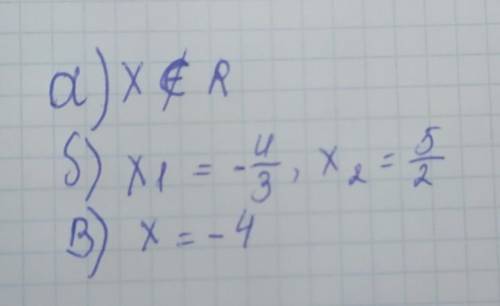 а) x ∉ R
б) x₁ = -4/3, x₂ = 5/2
в) x = -4